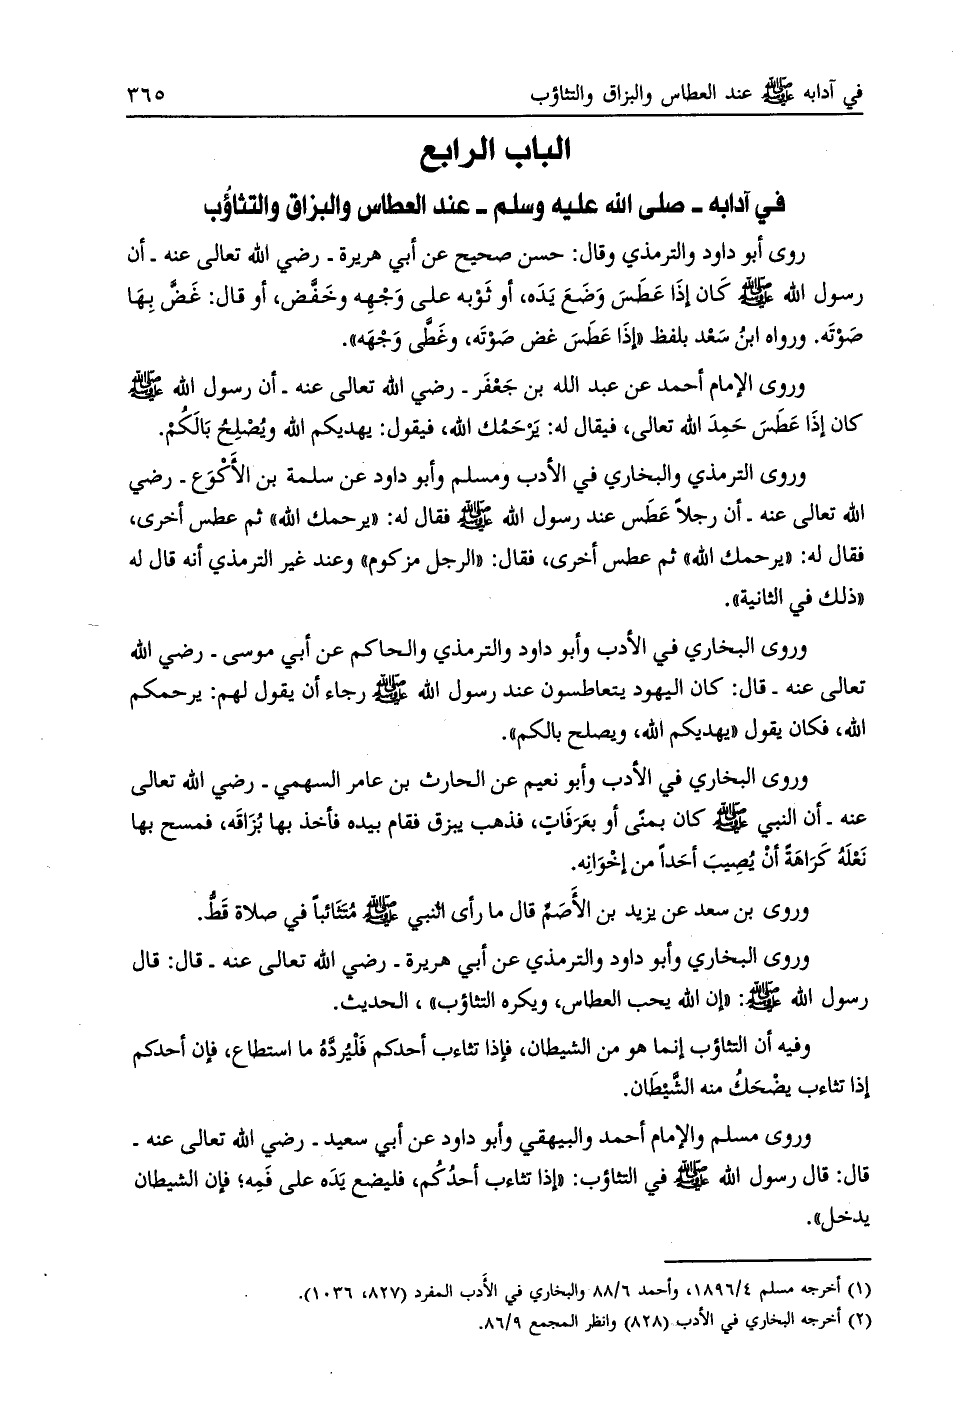 في آدابه ﷺ عند العطاس والبزاق والتثاؤب ٣٦٥
الباب الرابع
في آدابه ـ صلى الله عليه وسلم ـ عند العطاس والبزاق والتثاؤُب
روى أبو داود والترمذي وقال: حسن صحيح عن أبي هريرة ـ رضي الله تعالى عنه ـ أن
رسول الله ﷺ كَان إذَا عَطَسَ وَضَعَ يَدَه، أو ثَوْبه على وَجْهِه وخَفَّض، أو قال: غَضَّ بِهَا
صَوْتَه. ورواه ابنُ سَعْد بلفظ «إذَا عَطَسَ غض صَوْتَه، وغَطَّى وَجْهَه».
وروى الإمام أحمد عن عبد الله بن جَعْفَر ـ رضي الله تعالى عنه ـ أن رسول الله ﷺ
كان إذَا عَطَسَ حَمِدَ الله تعالى، فيقال له: يَرْحَمُك الله، فيقول: يهديكم الله ويُصْلِحُ بَالَكُمْ.
وروى الترمذي والبخاري في الأدب ومسلم وأبو داود عن سلمة بن الأَكْوَع ـ رضي
الله تعالى عنه ـ أن رجلاً عَطَس عند رسول الله ﷺ فقال له: «يرحمك الله» ثم عطس أخرى،
فقال له: «يرحمك الله» ثم عطس أخرى، فقال: «الرجل مزكوم» وعند غير الترمذي أنه قال له
«ذلك في الثانية».
وروى البخاري في الأدب وأبو داود والترمذي والحاكم عن أبي موسى ـ رضي الله
تعالى عنه ـ قال: كان اليهود يتعاطسون عند رسول الله ﷺ رجاء أن يقول لهم: يرحمكم
الله، فكان يقول «يهديكم الله، ويصلح بالكم».
وروى البخاري في الأدب وأبو نعيم عن الحارث بن عامر السهمي ـ رضي الله تعالى
عنه ـ أن النبي ﷺ كان بمنًى أو بعَرَفَاتٍ، فذهب يبزق فقام بيده فأخذ بها بُزَاقَه، فمسح بها
نَعْلَهُ كَرَاهَةً أنْ يُصِيبَ أحَداً من إخْوَانِه.
وروى بن سعد عن يزيد بن الأَصَمّ قال ما رأى النبي ﷺ مُتَثَائباً في صلاة قَطُّ.
وروى البخاري وأبو داود والترمذي عن أبي هريرة ـ رضي الله تعالى عنه ـ قال: قال
رسول الله ﷺ: «إن الله يحب العطاس، ويكره التثاؤب» ، الحديث.
وفيه أن التثاؤب إنما هو من الشيطان، فإذا تثاءب أحدكم فَلْيُردَّهُ ما استطاع، فإن أحدكم
إذا تثاءب يضْحَكُ منه الشَّيْطَان.
وروى مسلم والإمام أحمد والبيهقي وأبو داود عن أبي سعيد ـ رضي الله تعالى عنه ـ
قال: قال رسول الله ﷺ في التثاؤب: «إذا تثاءب أحدُكُم، فليضع يَدَه على فَمِه؛ فإن الشيطان
يدخل».
(١) أخرجه مسلم ١٨٩٦/٤، وأحمد ٨٨/٦ والبخاري في الأَدب المفرد (٨٢٧، ١٠٣٦).
(٢) أخرجه البخاري في الأدب (٨٢٨) وانظر المجمع ٨٦/٩.